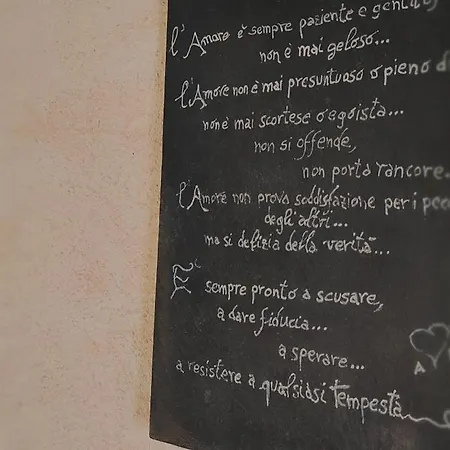 l'Amore è sempre paziente e gentile,
non è mai geloso...
l'Amore non è mai presuntuoso o pieno d
non è mai scortese o egoista...
non si offende,
non porta rancore.
l'Amore non prova soddisfazione per i pecc
degli altri...
ma si delizia della verità...
E' sempre pronto a scusare,
a dare fiducia...
a sperare...
a resistere a qualsiasi tempesta
A